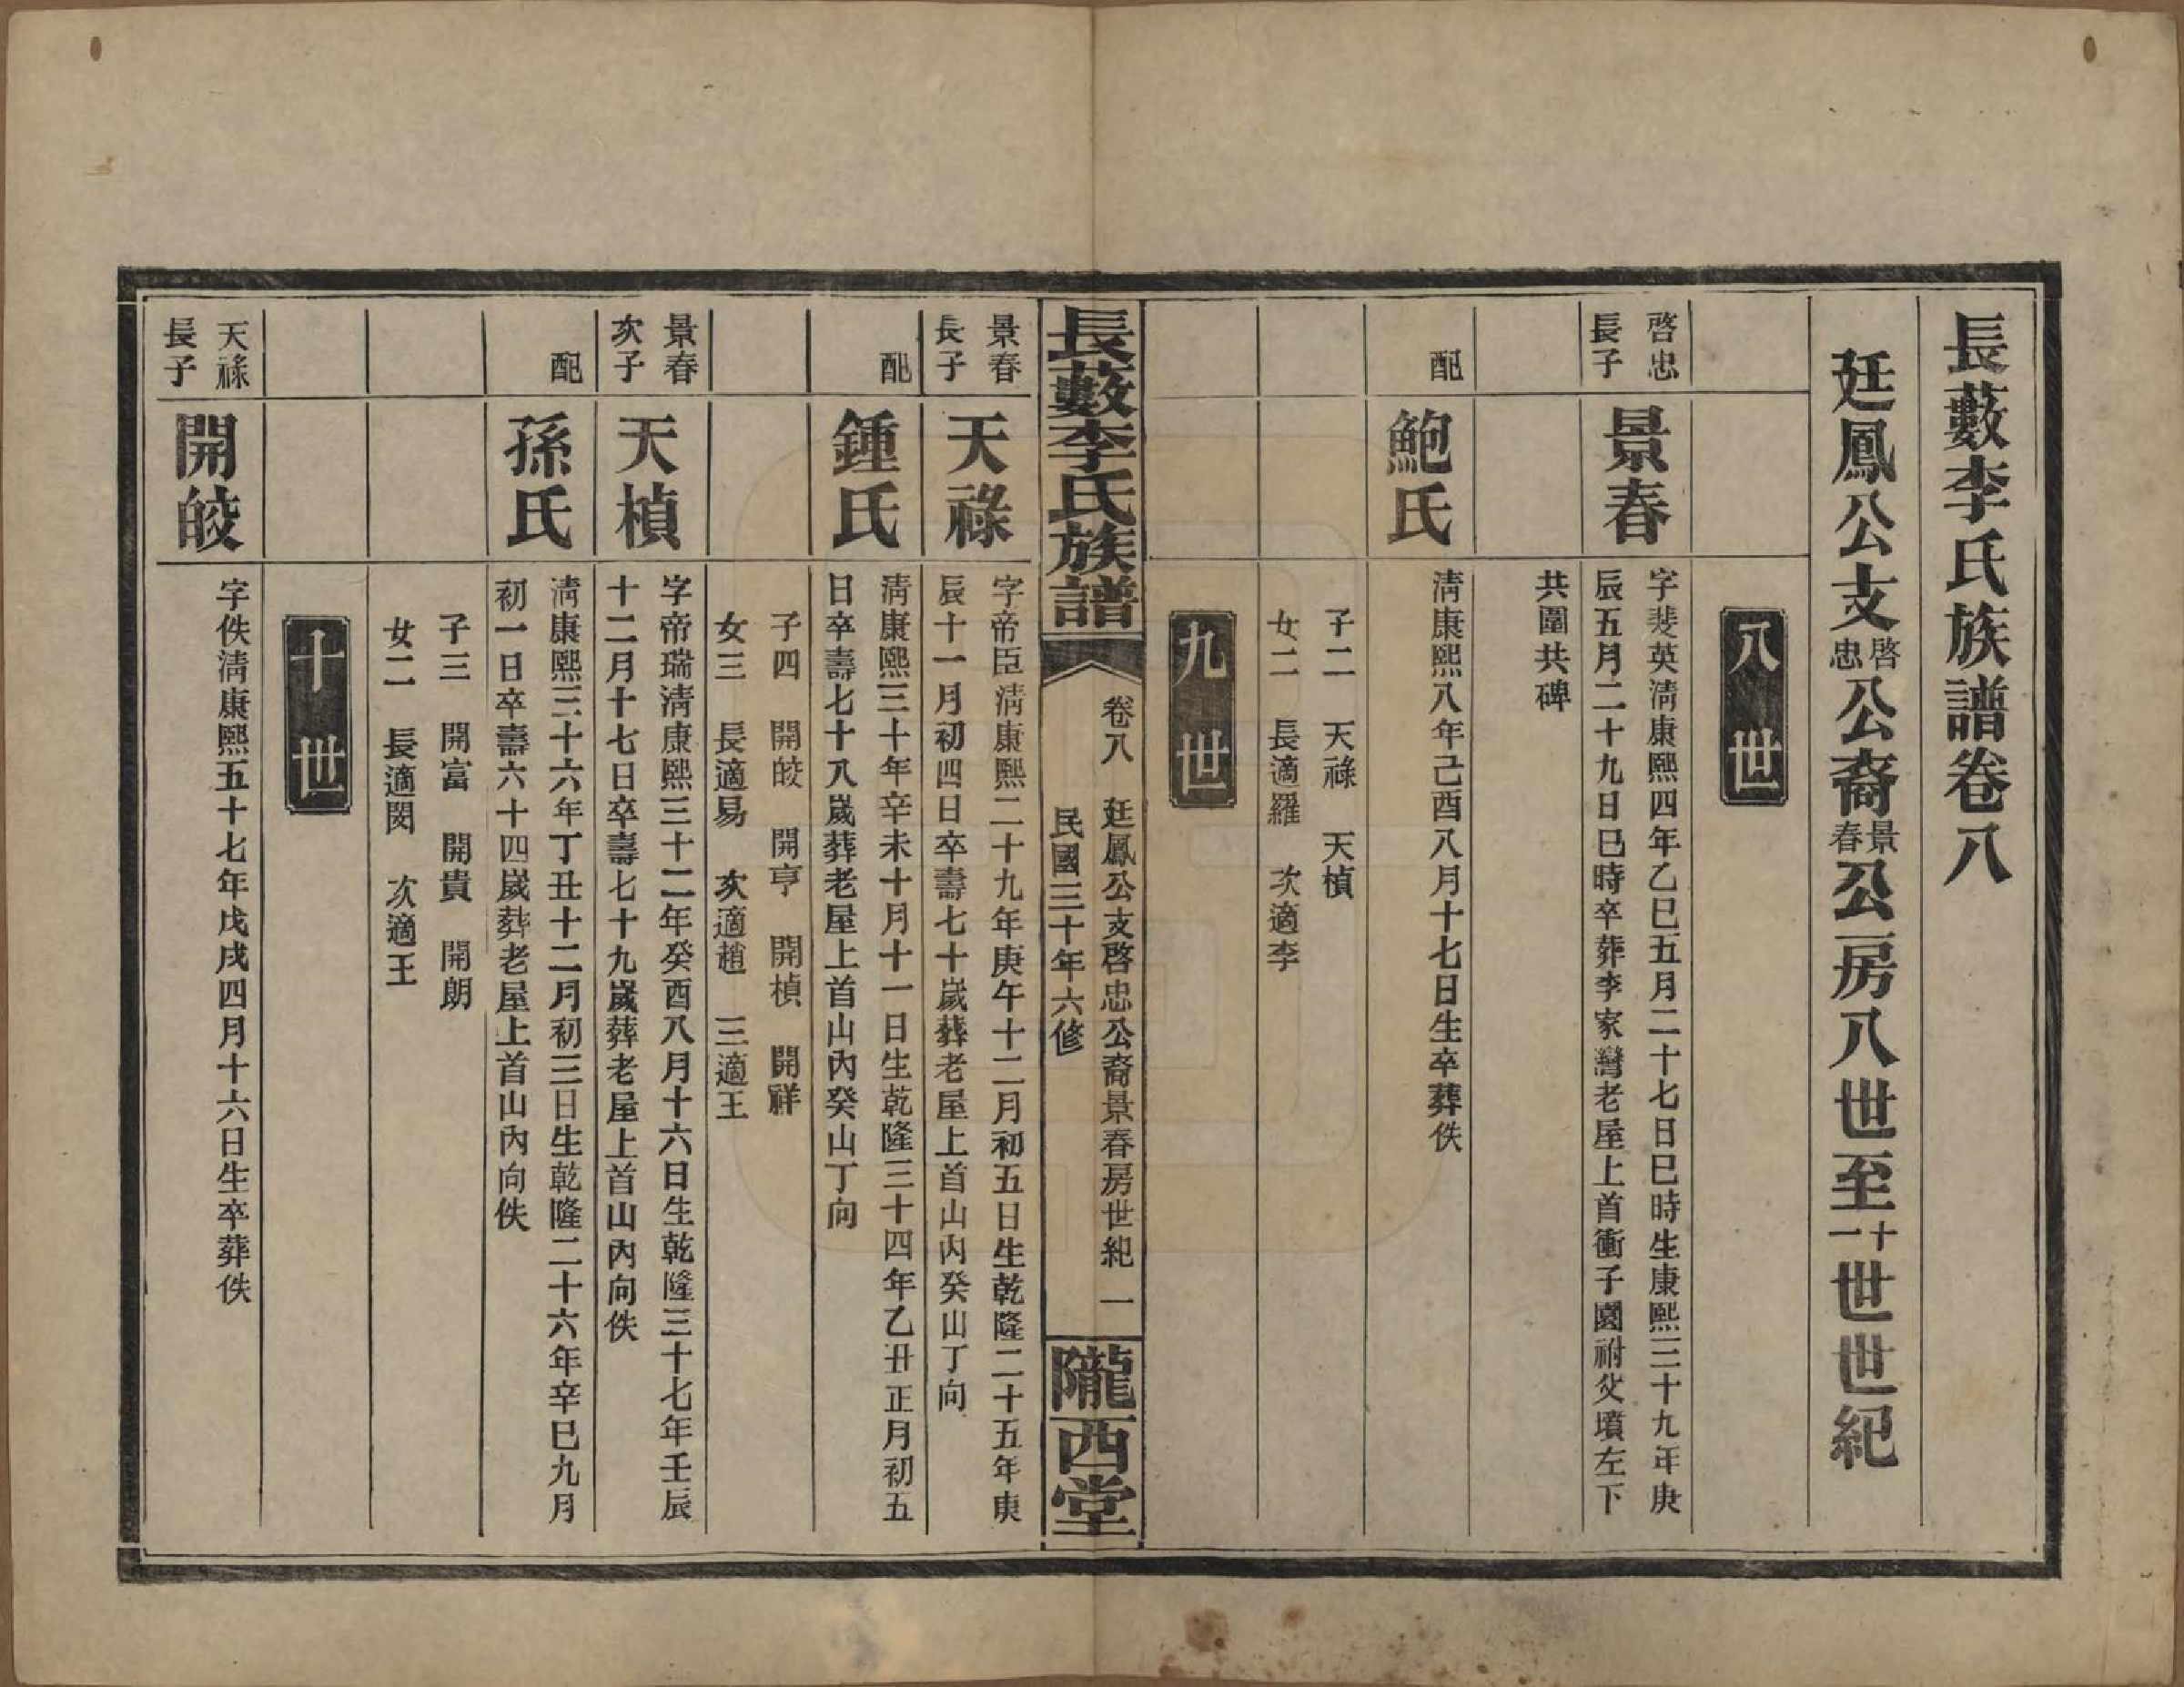 長藪李氏族譜卷八
廷鳳公支啓忠公裔景春公房八世至十一世世紀
八世
啓忠
長子
景春
字斐英淸康熙四年乙巳五月二十七日巳時生康熙三十九年庚
辰五月二十九日巳時卒葬李家灣老屋上首衝子園祔父墳左下
共圍共碑
配
鮑氏
淸康熙八年己酉八月十七日生卒葬佚
子二　天祿　天楨
女二　長適羅　次適李
九世
長藪李氏族譜
卷八　廷鳳公支啓忠公裔景春房世紀　一
民國三十年六修
隴西堂
景春
長子
天祿
字帝臣淸康熙二十九年庚午十二月初五日生乾隆二十五年庚
辰十一月初四日卒壽七十歲葬老屋上首山內癸山丁向
配
鍾氏
淸康熙三十年辛未十月十一日生乾隆三十四年乙丑正月初五
日卒壽七十八歲葬老屋上首山內癸山丁向
子四　開皎　開亨　開楨　開祥
女三　長適易　次適趙　三適王
景春
次子
天楨
字帝瑞淸康熙三十二年癸酉八月十六日生乾隆三十七年壬辰
十二月十七日卒壽七十九歲葬老屋上首山內向佚
配
孫氏
淸康熙三十六年丁丑十二月初三日生乾隆二十六年辛巳九月
初一日卒壽六十四歲葬老屋上首山內向佚
子三　開富　開貴　開朗
女二　長適閔　次適王
十世
天祿
長子
開皎
字佚淸康熙五十七年戊戌四月十六日生卒葬佚